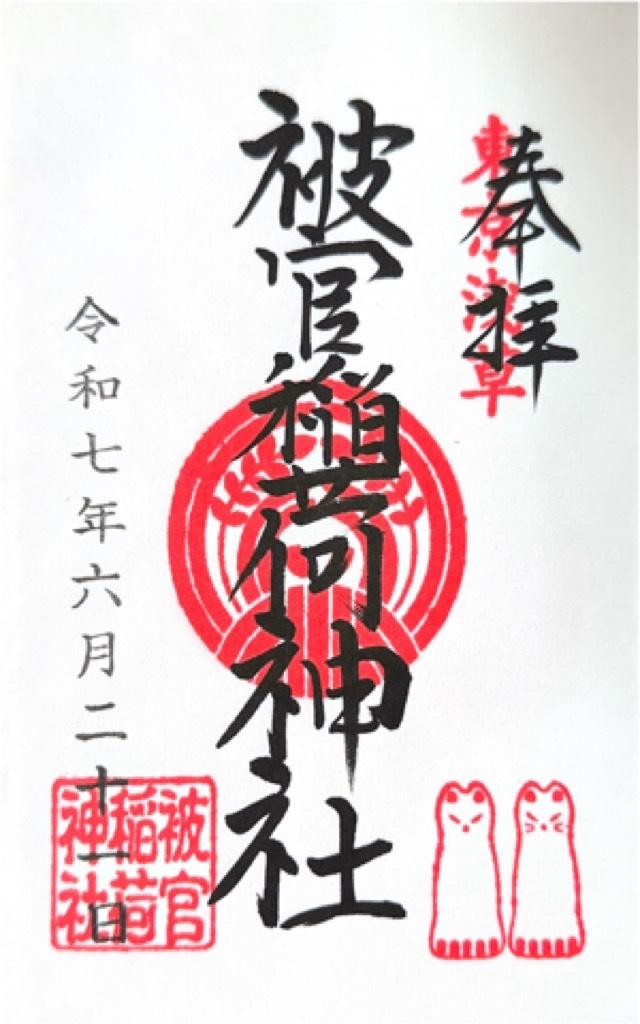 奉拝
東京浅草
被官稲荷神社
令和七年六月二十一日
被官
稲荷
神社